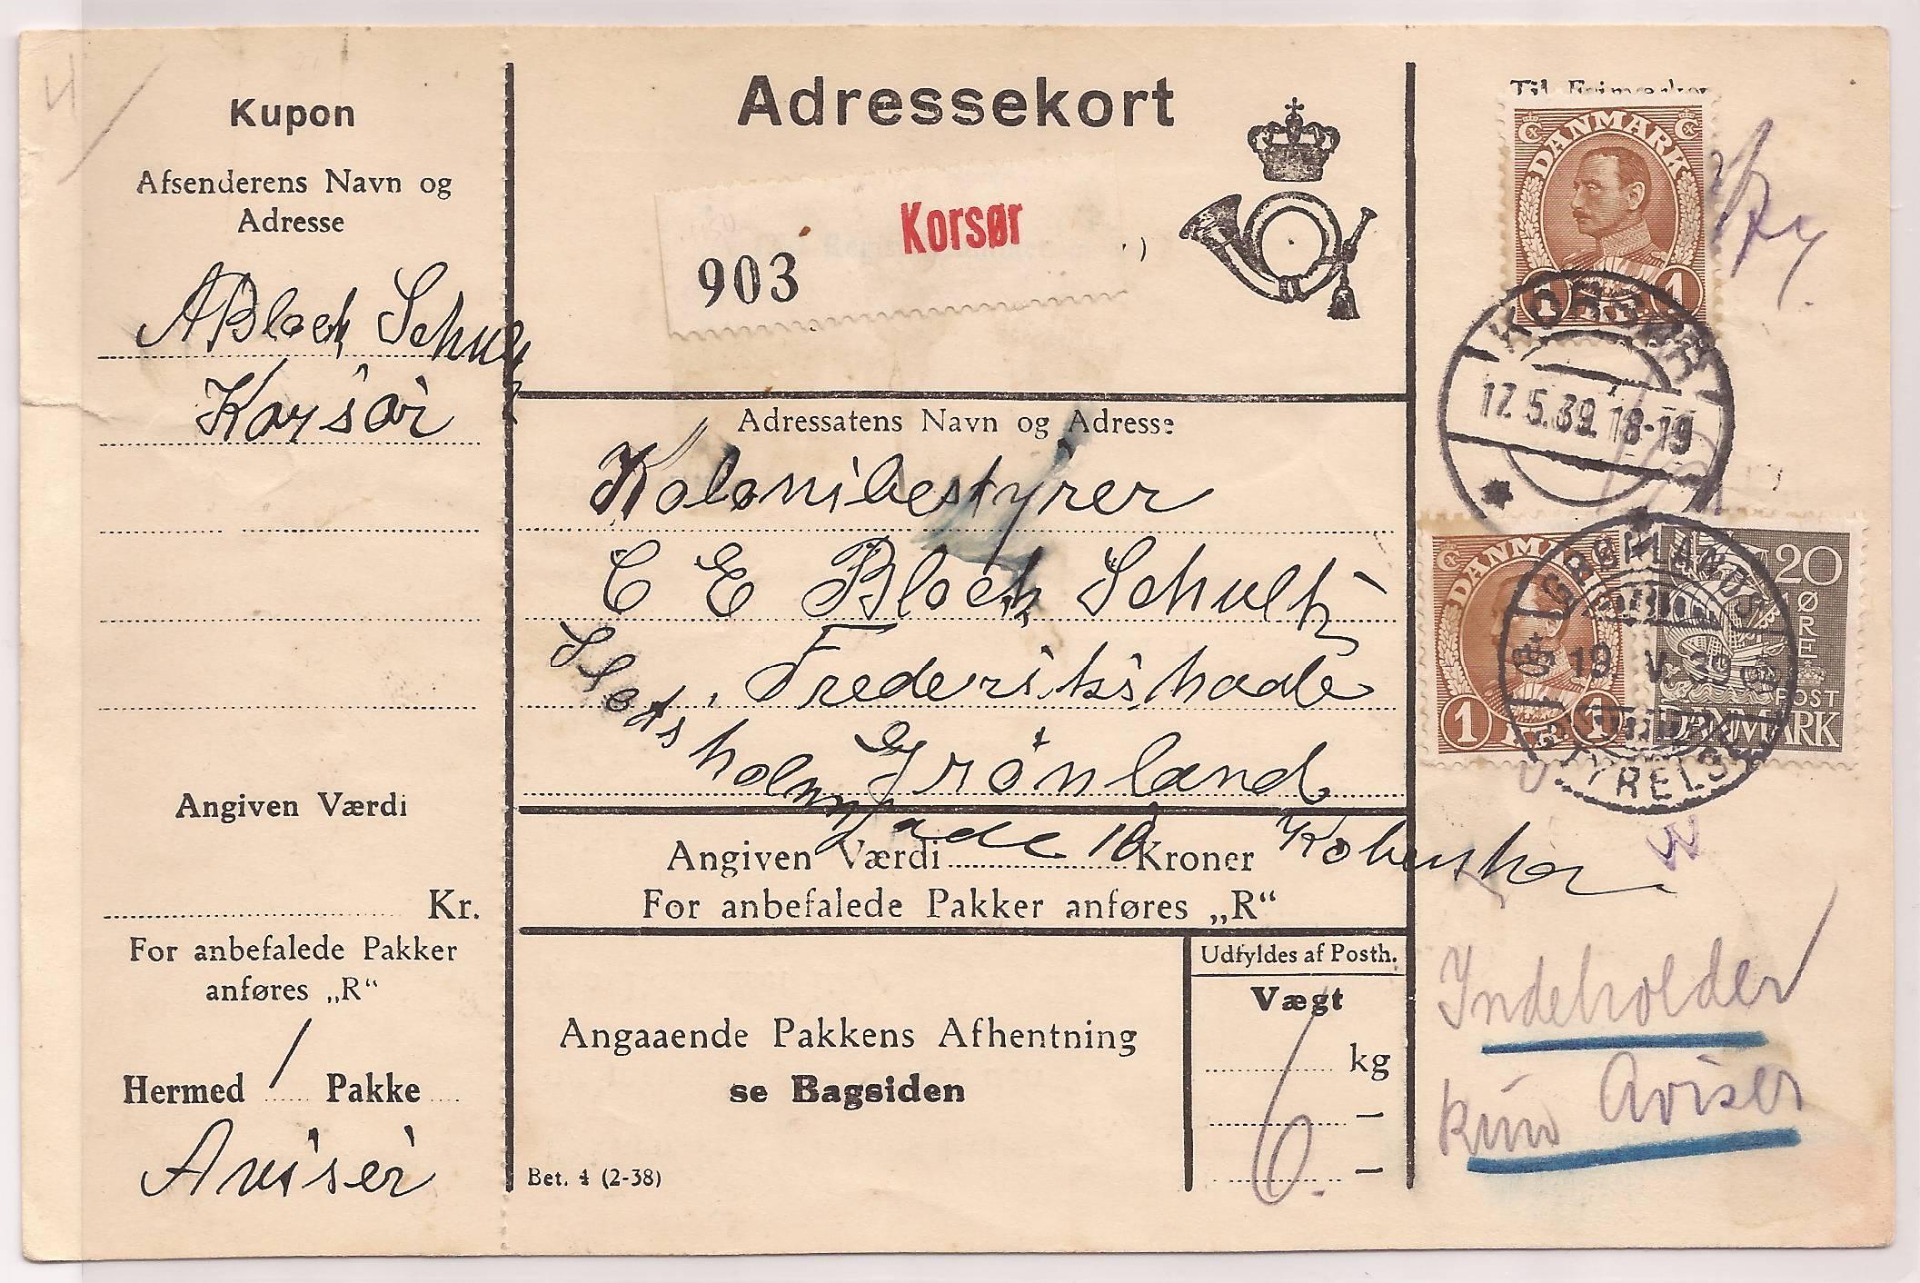 Kupon
Afsenderens Navn og
Adresse
A Bloch Schultz
Korsör
Angiven Værdi
Kr.
For anbefalede Pakker
anføres „R“
Hermed 1 Pakke
Aviser
Adressekort
903 Korsør
Adressatens Navn og Adresse
Kolonibestyrer
C E Bloch Schultz
Frederikshaab
Grönland
Slotsholmsgade 10 Köbenhavn
Angiven Værdi Kroner
For anbefalede Pakker anføres „R“
Angaaende Pakkens Afhentning
se Bagsiden
Bet. 4 (2-38)
Udfyldes af Posth.
Vægt
6 kg
Til Frimærker
DANMARK
1 1
KORSØR
17.5.39.18-19
DANMARK
1 KR 1
20 ØRE
POST
DANMARK
GRØNLANDS STYRELSE
19 V. 39
Indeholder
kun Aviser